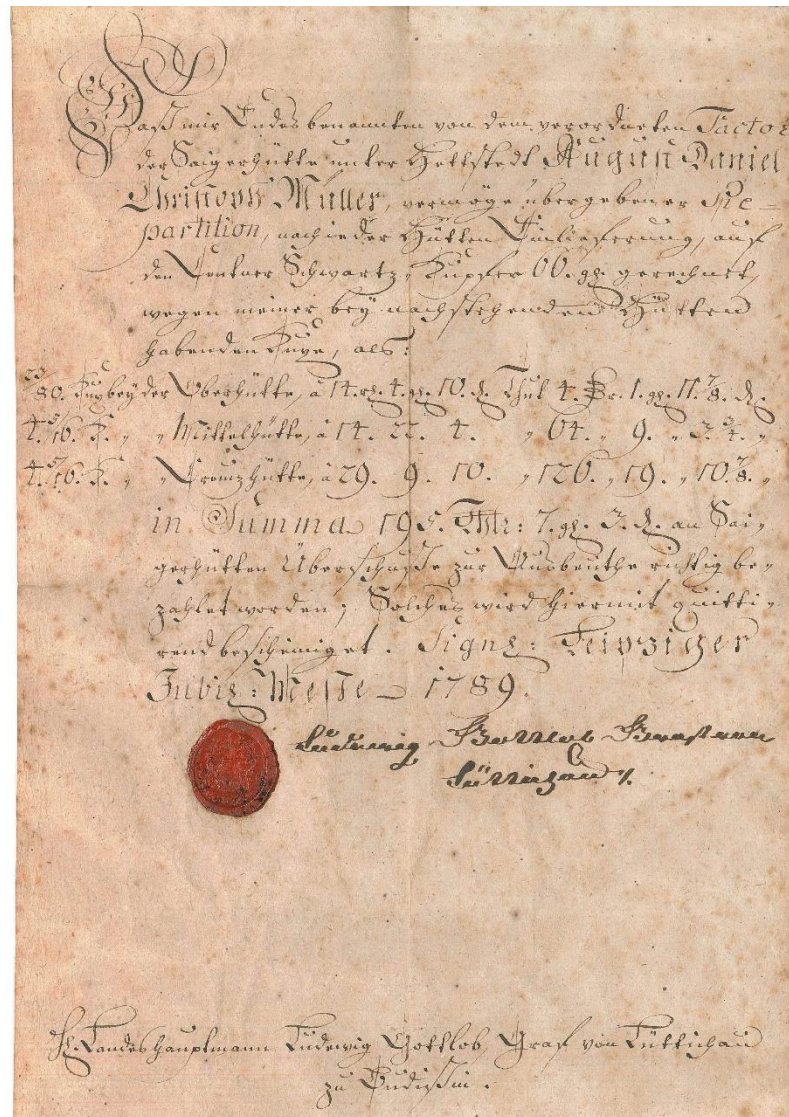 Daß mir Endesbenannten von dem verordneten Factor
der Saigerhütte unter Hettstedt August Daniel
Christoph Müller, vermöge übergebener Re-
partition, nach jeder Hütten Einlieferung, auf
den Centner Schwartz-Kupfer 66. gl. gerechnet,
wegen meiner bey nachstehenden Hütten
habenden Kuxe, als:
23/80. Kux bey der Oberhütte, à 14. rl. 4. gl. 10. d. Thut 4. Thlr. 1. gl. 11. 7/8. d.
4. 5/16. K. " " Mittelhütte, à 14. 22. 4. " 64. " 9. " 3. 3/4. "
4. 5/16. K. " " Creuzhütte, à 29. 9. 10. " 126. " 19. " 10. 7/8. "
in Summa 195. Thlr: 7. gl. 3. d. an Sai-
gerhütten Überschuße zur Ausbeuthe richtig be-
zahlet worden; Solches wird hiermit quitti-
rend bescheiniget. Signl: Leipziger
Jubil: Messe 1789.
Ludewig Gottlob Graf von
Lüttichau
H. Landeshauptmann Ludewig Gottlob, Graf von Lüttichau
zu Budißin.